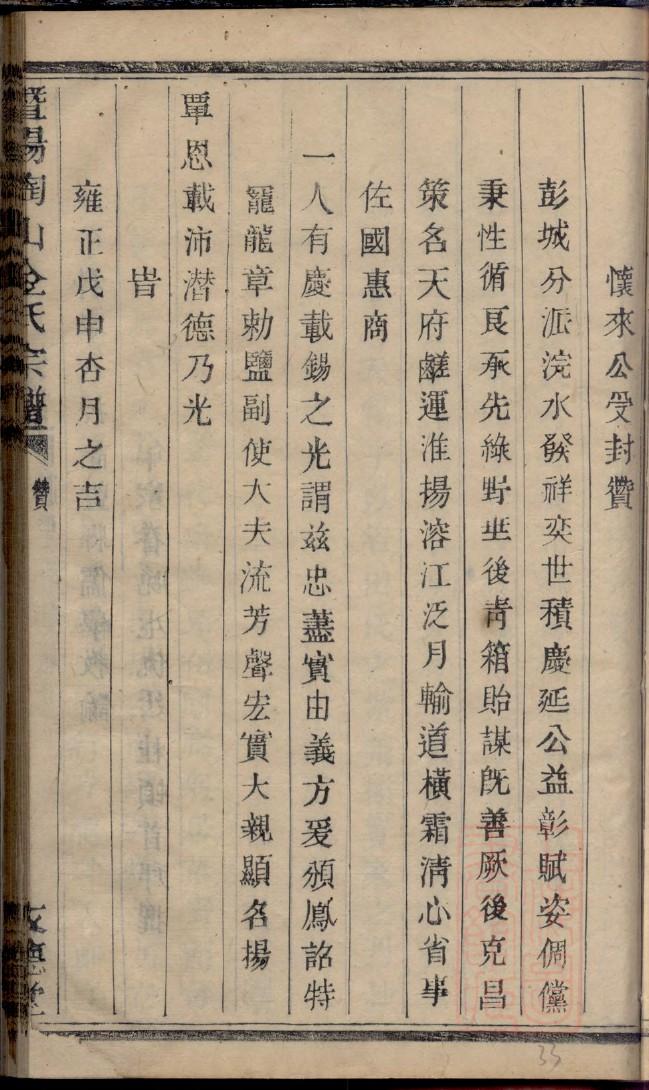 懷來公受封贊
彭城分派浣水發祥奕世積慶延公益彰賦姿倜儻
秉性循良承先綠野垂後青箱貽謀旣善厥後克昌
策名天府鹺運淮揚溶江泛月輸道橫霜淸心省事
佐國惠商
一人有慶載錫之光謂兹忠藎實由義方爰頒鳳詔特
寵龍章勅鹽副使大夫流芳聲宏實大親顯名揚
覃恩載沛潛德乃光
旹
雍正戊申杏月之吉
暨陽陶山金氏宗譜
贊
友恵堂
33